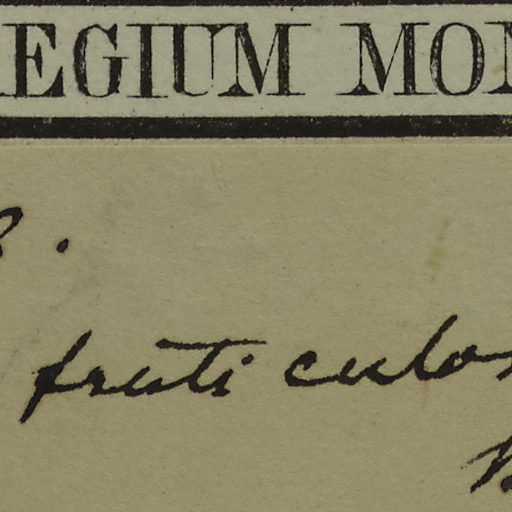 EGIUM MON
fruticulos